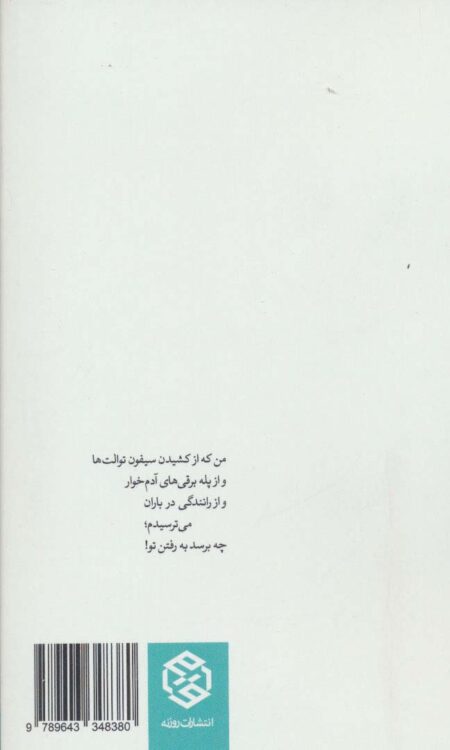 من که از کشیدن سیفون توالت‌ها
و از پله برقی‌های آدم‌خوار
و از رانندگی در باران
می‌ترسیدم؛
چه برسد به رفتن تو!
انتشارات روزنه
9 789643 348380